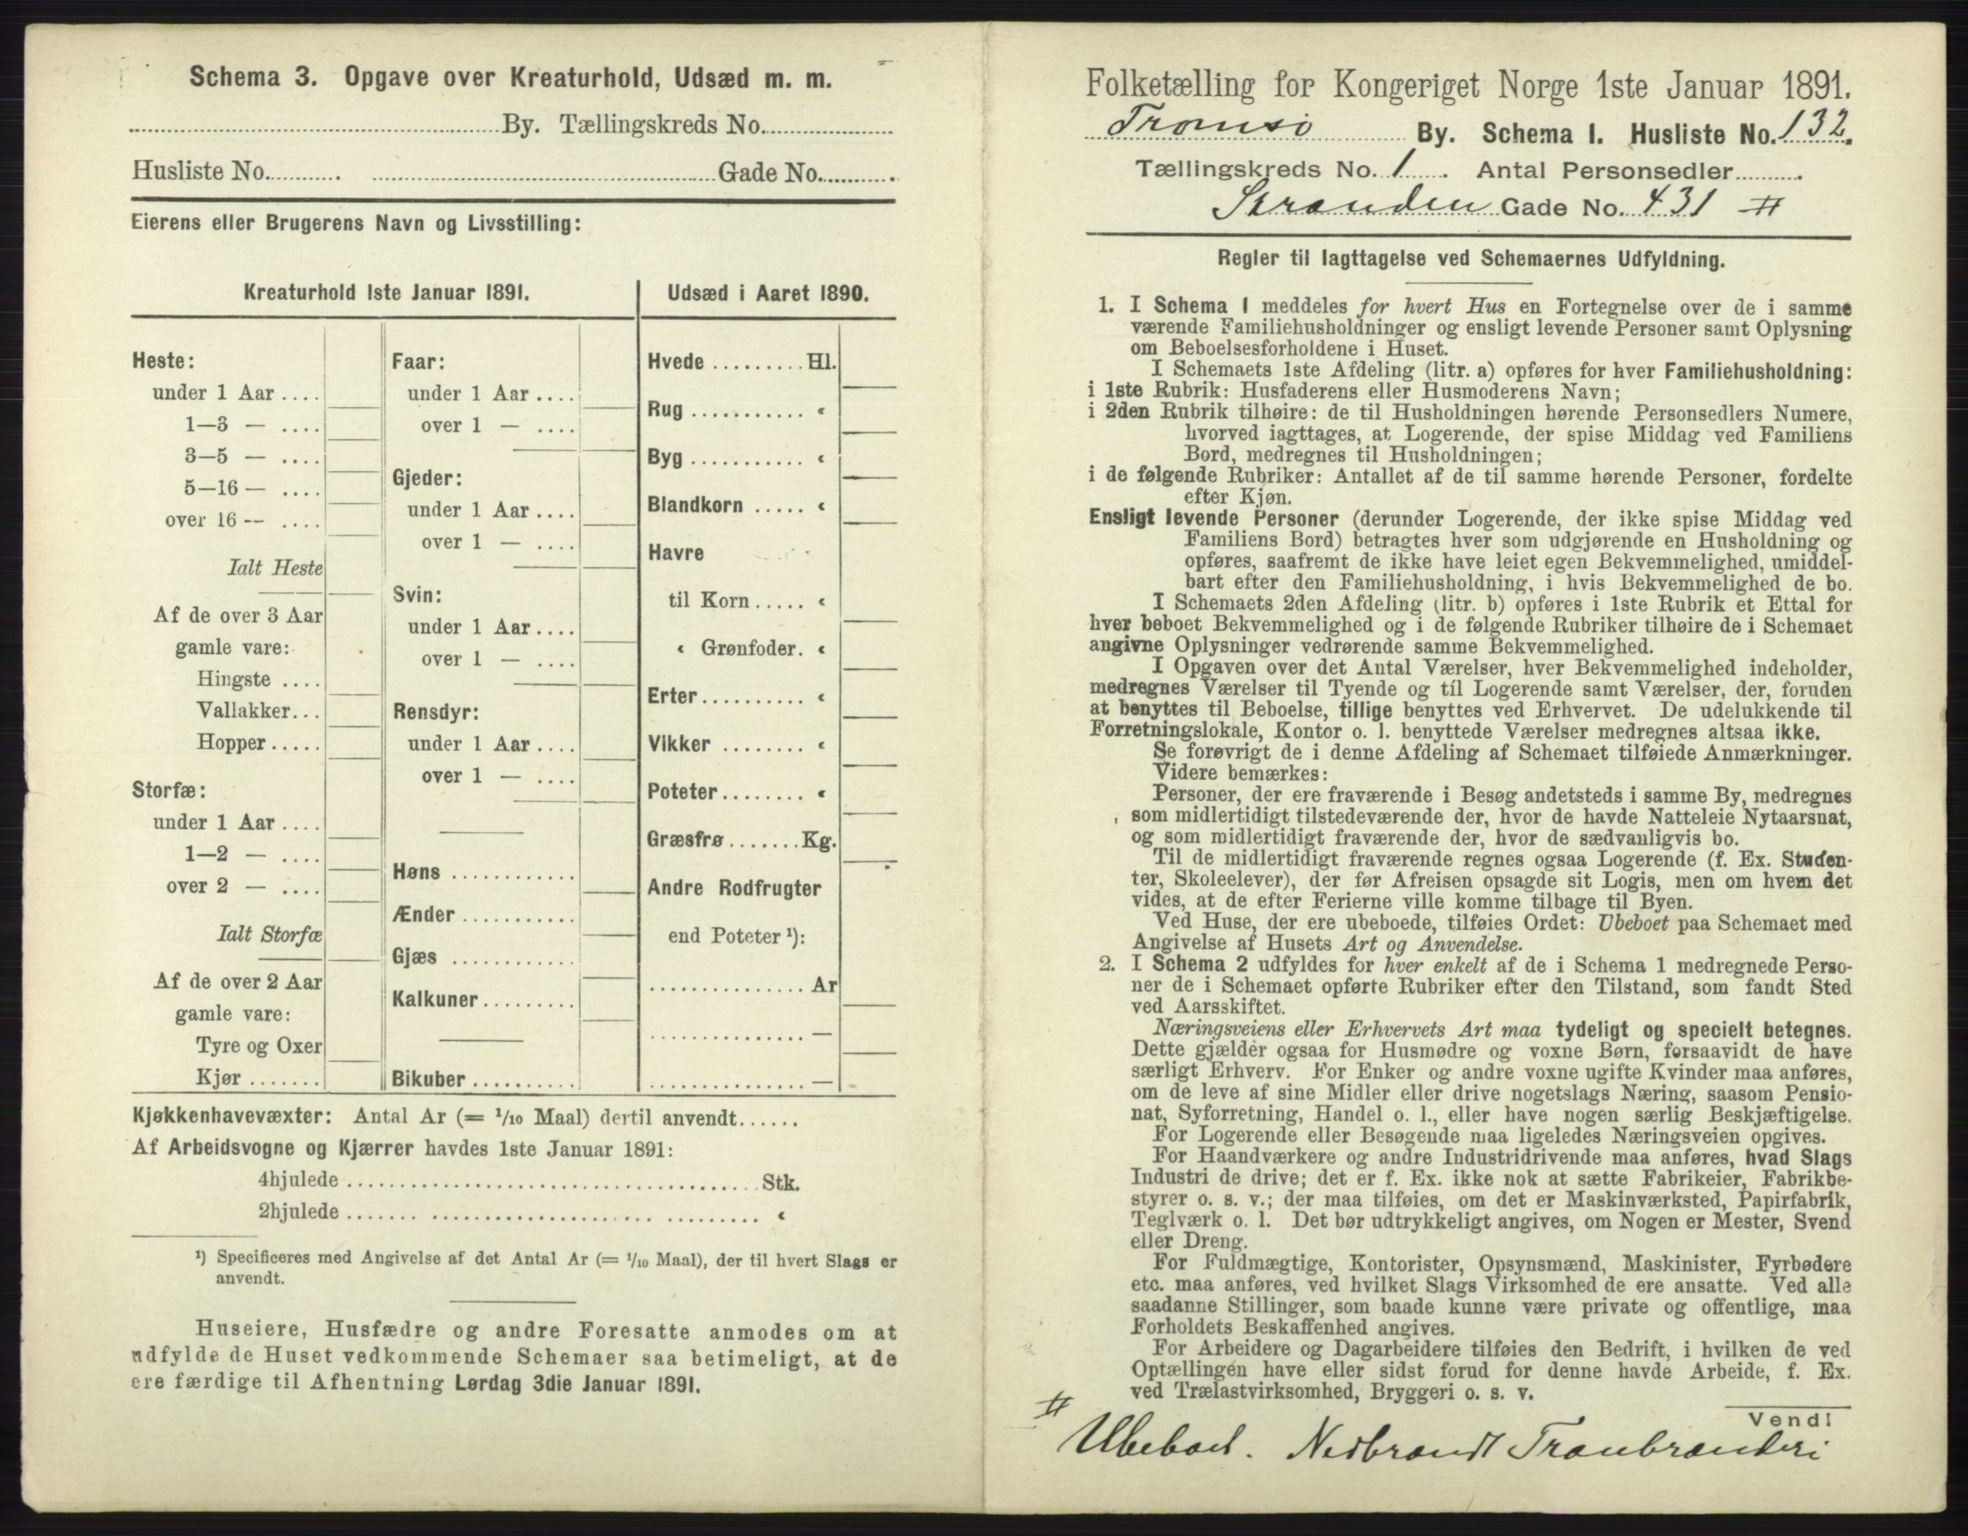 Schema 3. Opgave over Kreaturhold, Udsæd m. m.
By. Tællingskreds No.
Husliste No. Gade No.
Eierens eller Brugerens Navn og Livsstilling:
Kreaturhold 1ste Januar 1891.
Heste:
under 1 Aar ....
1—3 — ....
3—5 — ....
5—16 — ....
over 16 — ....
Ialt Heste
Af de over 3 Aar
gamle vare:
Hingste ....
Vallakker...
Hopper.....
Storfæ:
under 1 Aar ....
1—2 — ....
over 2 — ....
Ialt Storfæ
Af de over 2 Aar
gamle vare:
Tyre og Oxer
Kjør .......
Faar:
under 1 Aar ....
over 1 — ....
Gjeder:
under 1 Aar ....
over 1 — ....
Svin:
under 1 Aar ....
over 1 — ....
Rensdyr:
under 1 Aar ....
over 1 — ....
Høns ............
Ænder ...........
Gjæs ............
Kalkuner.........
Bikuber ..........
Udsæd i Aaret 1890.
Hvede ......... Hl.
Rug ........... «
Byg ........... «
Blandkorn ..... «
Havre
til Korn ..... «
« Grønfoder. «
Erter.......... «
Vikker ........ «
Poteter........ «
Græsfrø .......Kg.
Andre Rodfrugter
end Poteter ¹):
............... Ar
............... —
............... —
Kjøkkenhavevæxter: Antal Ar (= 1/10 Maal) dertil anvendt......
Af Arbeidsvogne og Kjærrer havdes 1ste Januar 1891:
4hjulede ....................................... Stk.
2hjulede ....................................... «
¹) Specificeres med Angivelse af det Antal Ar (= 1/10 Maal), der til hvert Slags er
anvendt.
Huseiere, Husfædre og andre Foresatte anmodes om at
udfylde de Huset vedkommende Schemaer saa betimeligt, at de
ere færdige til Afhentning Lørdag 3die Januar 1891.
Folketælling for Kongeriget Norge 1ste Januar 1891.
Tromsø By. Schema 1. Husliste No. 132.
Tællingskreds No. 1. Antal Personsedler.
Stranden Gade No. 431 #
Regler til Iagttagelse ved Schemaernes Udfyldning.
1. I Schema 1 meddeles for hvert Hus en Fortegnelse over de i samme
værende Familiehusholdninger og ensligt levende Personer samt Oplysning
om Beboelsesforholdene i Huset.
I Schemaets 1ste Afdeling (litr. a) opføres for hver Familiehusholdning:
i 1ste Rubrik: Husfaderens eller Husmoderens Navn;
i 2den Rubrik tilhøire: de til Husholdningen hørende Personsedlers Numere,
hvorved iagttages, at Logerende, der spise Middag ved Familiens
Bord, medregnes til Husholdningen;
i de følgende Rubriker: Antallet af de til samme hørende Personer, fordelte
efter Kjøn.
Ensligt levende Personer (derunder Logerende, der ikke spise Middag ved
Familiens Bord) betragtes hver som udgjørende en Husholdning og
opføres, saafremt de ikke have leiet egen Bekvemmelighed, umiddel-
bart efter den Familiehusholdning, i hvis Bekvemmelighed de bo.
I Schemaets 2den Afdeling (litr. b) opføres i 1ste Rubrik et Ettal for
hver beboet Bekvemmelighed og i de følgende Rubriker tilhøire de i Schemaet
angivne Oplysninger vedrørende samme Bekvemmelighed.
I Opgaven over det Antal Værelser, hver Bekvemmelighed indeholder,
medregnes Værelser til Tyende og til Logerende samt Værelser, der, foruden
at benyttes til Beboelse, tillige benyttes ved Erhvervet. De udelukkende til
Forretningslokale, Kontor o. l. benyttede Værelser medregnes altsaa ikke.
Se forøvrigt de i denne Afdeling af Schemaet tilføiede Anmærkninger.
Videre bemærkes:
Personer, der ere fraværende i Besøg andetsteds i samme By, medregnes
som midlertidigt tilstedeværende der, hvor de havde Natteleie Nytaarsnat,
og som midlertidigt fraværende der, hvor de sædvanligvis bo.
Til de midlertidigt fraværende regnes ogsaa Logerende (f. Ex. Studen-
ter, Skoleelever), der før Afreisen opsagde sit Logis, men om hvem det
vides, at de efter Ferierne ville komme tilbage til Byen.
Ved Huse, der ere ubeboede, tilføies Ordet: Ubeboet paa Schemaet med
Angivelse af Husets Art og Anvendelse.
2. I Schema 2 udfyldes for hver enkelt af de i Schema 1 medregnede Perso-
ner de i Schemaet opførte Rubriker efter den Tilstand, som fandt Sted
ved Aarsskiftet.
Næringsveiens eller Erhvervets Art maa tydeligt og specielt betegnes.
Dette gjælder ogsaa for Husmødre og voxne Børn, forsaavidt de have
særligt Erhverv. For Enker og andre voxne ugifte Kvinder maa anføres,
om de leve af sine Midler eller drive nogetslags Næring, saasom Pensio-
nat, Syforretning, Handel o. l., eller have nogen særlig Beskjæftigelse.
For Logerende eller Besøgende maa ligeledes Næringsveien opgives.
For Haandværkere og andre Industridrivende maa anføres, hvad Slags
Industri de drive; det er f. Ex. ikke nok at sætte Fabrikeier, Fabrikbe-
styrer o. s. v.; der maa tilføies, om det er Maskinværksted, Papirfabrik,
Teglværk o. l. Det bør udtrykkeligt angives, om Nogen er Mester, Svend
eller Dreng.
For Fuldmægtige, Kontorister, Opsynsmænd, Maskinister, Fyrbødere
etc. maa anføres, ved hvilket Slags Virksomhed de ere ansatte. Ved alle
saadanne Stillinger, som baade kunne være private og offentlige, maa
Forholdets Beskaffenhed angives.
For Arbeidere og Dagarbeidere tilføies den Bedrift, i hvilken de ved
Optællingen have eller sidst forud for denne havde Arbeide, f. Ex.
ved Trælastvirksomhed, Bryggeri o. s. v.
Vend!
# Ubeboet. Nedbrændt Tranbrænderi